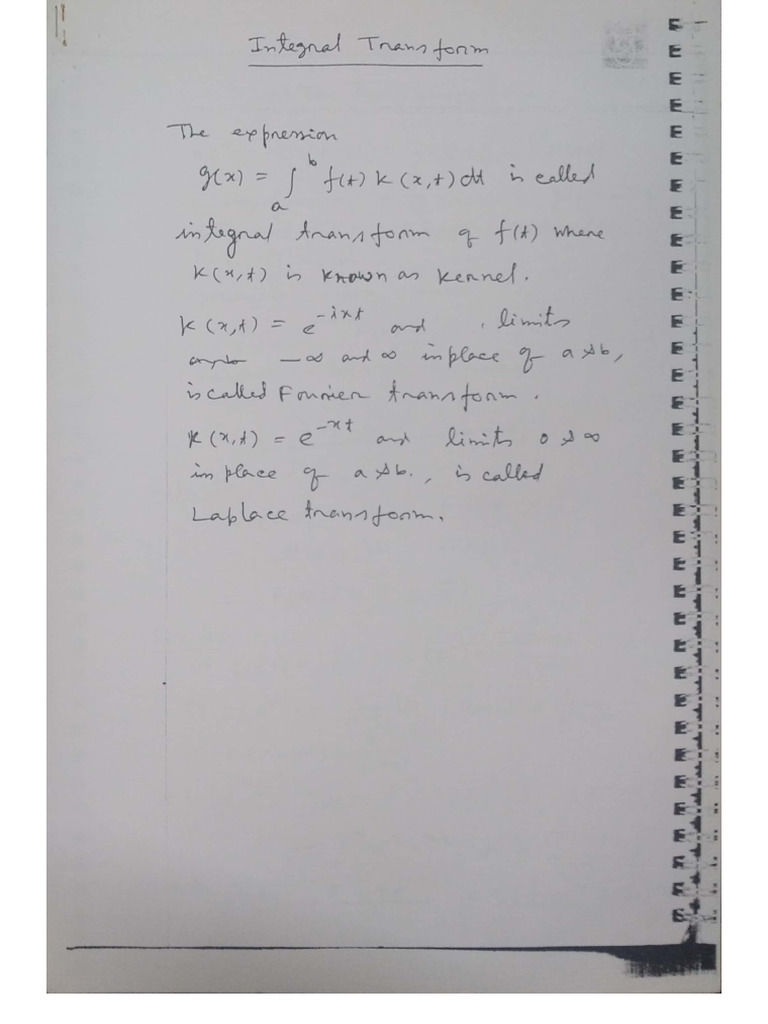 Integral Transform
The expression
g(x) = ∫_a^b f(t) K(x,t) dt is called
integral transform of f(t) where
K(x,t) is known as kernel.
K(x,t) = e^{-ixt} and limits
-∞ and ∞ in place of a & b,
is called Fourier transform.
K(x,t) = e^{-xt} and limits 0 & ∞
in place of a & b., is called
Laplace transform.